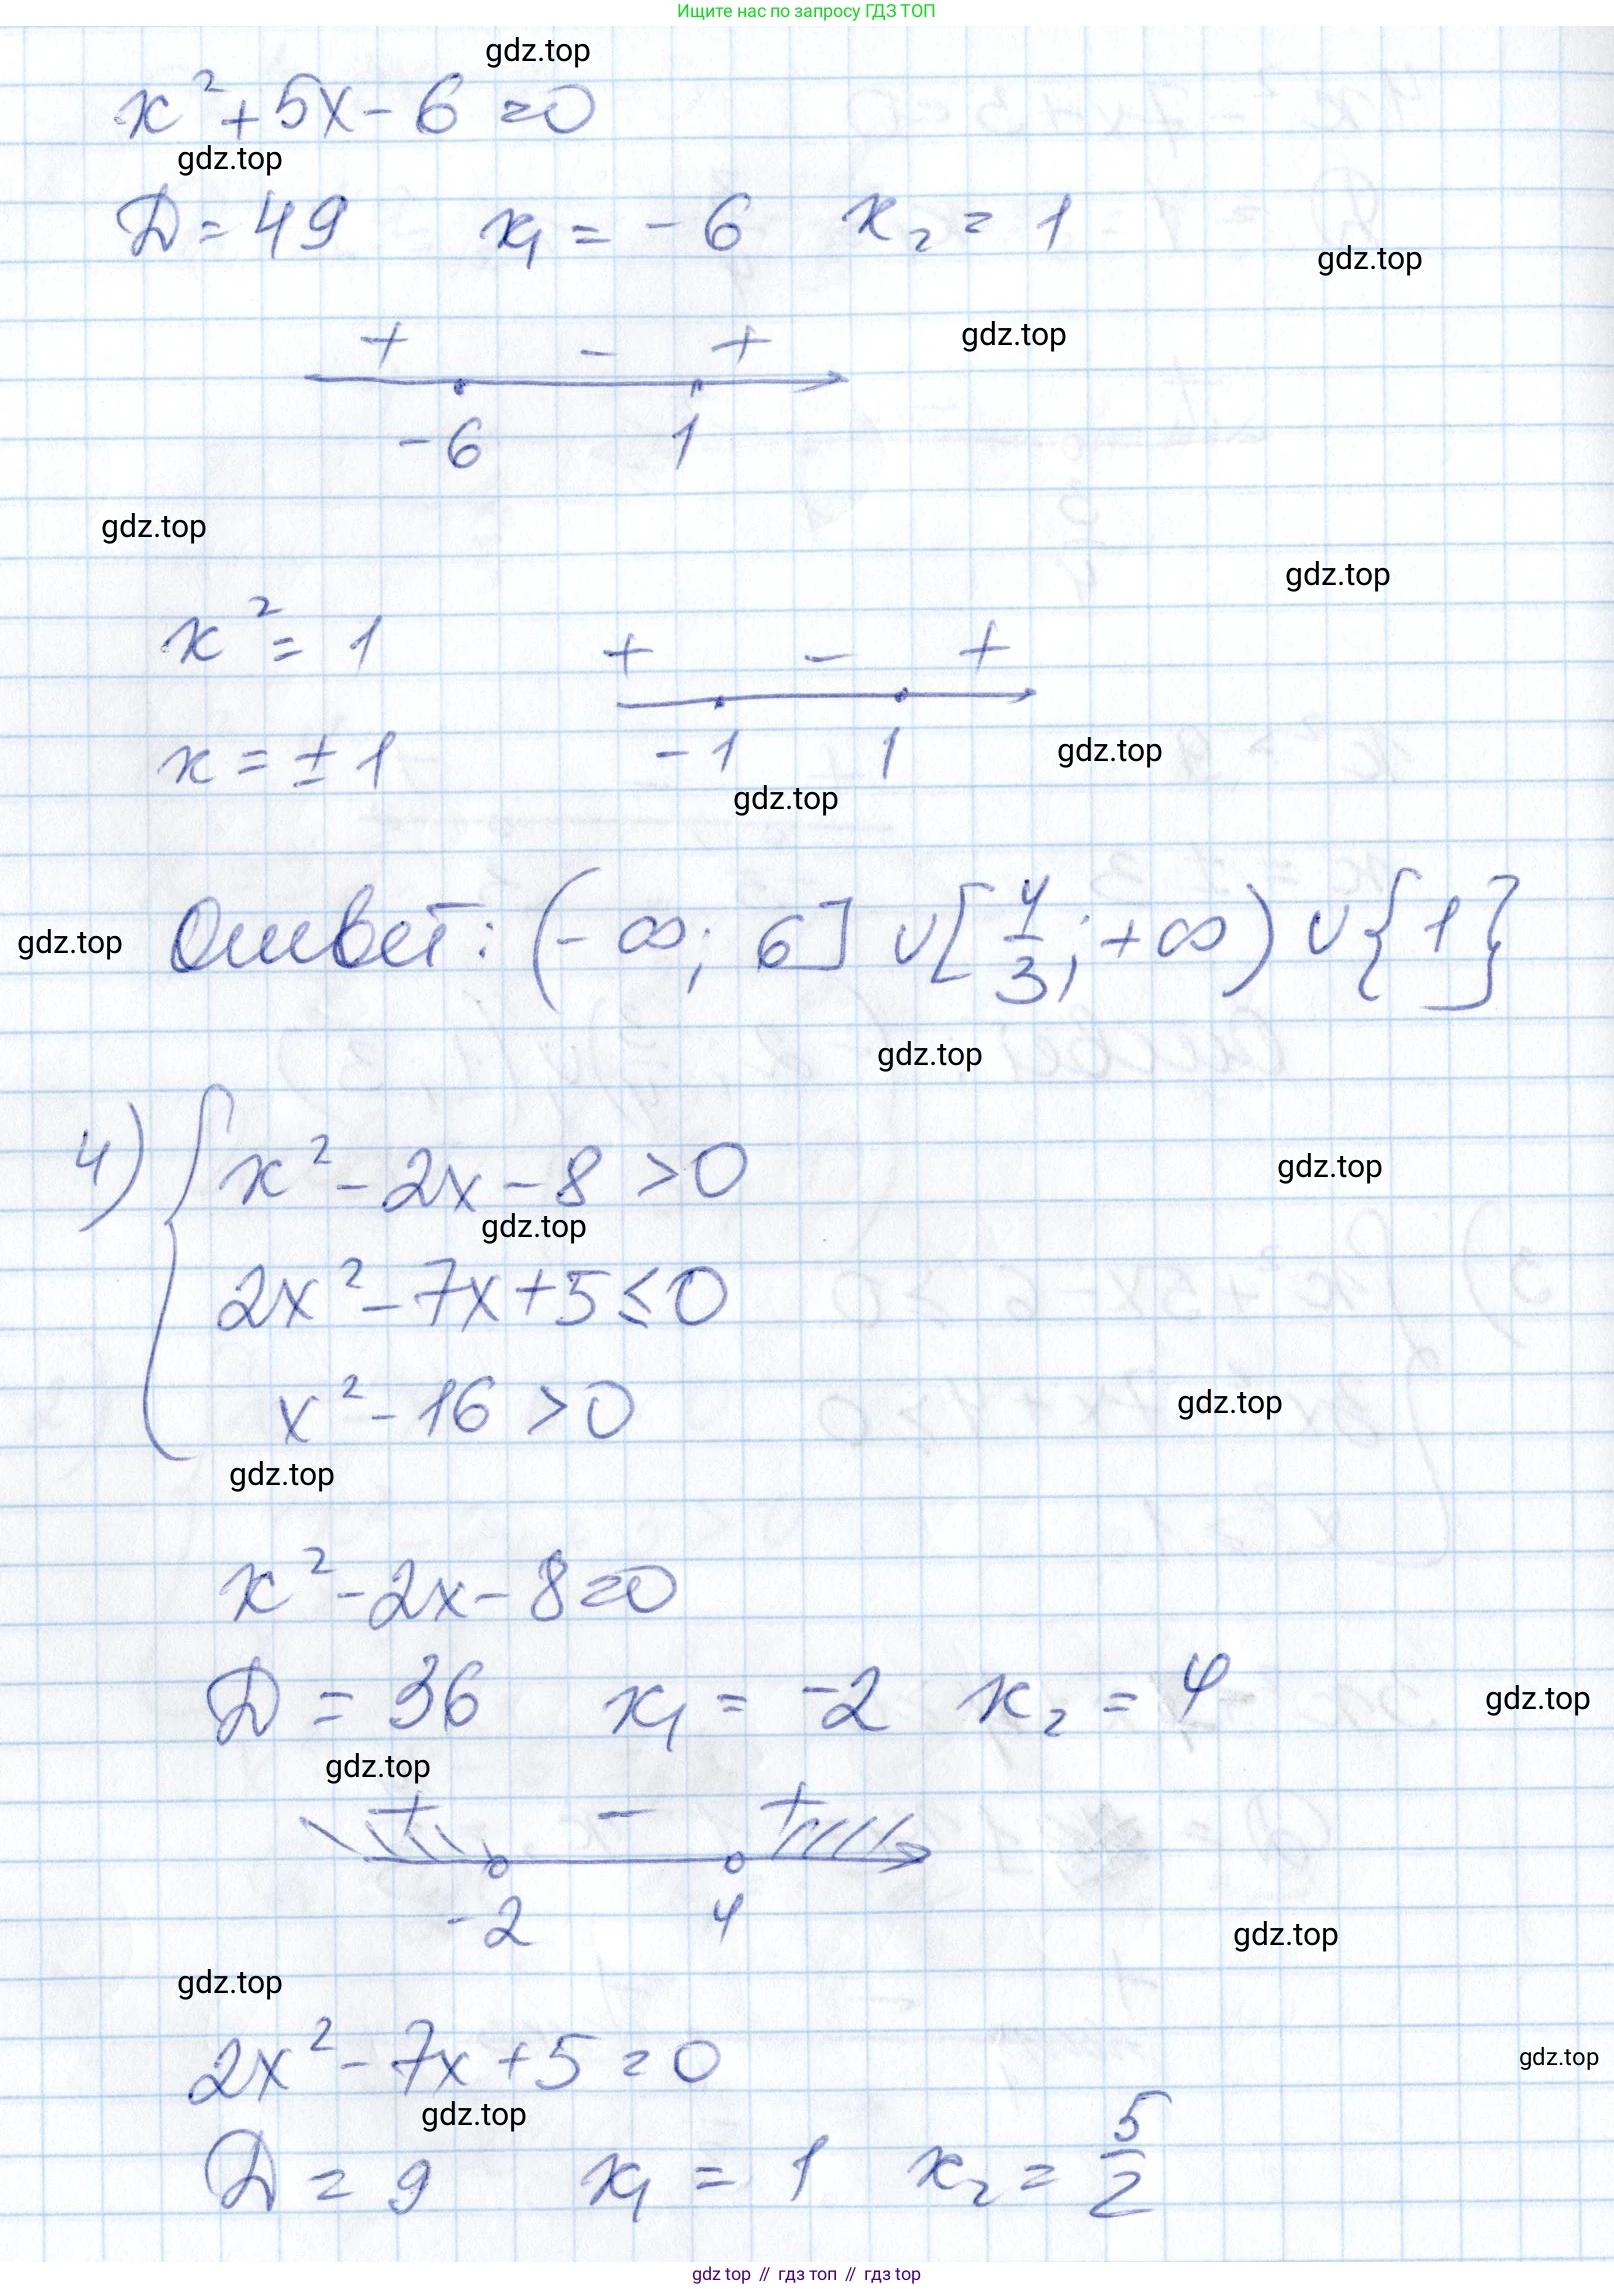 Ищите нас по запросу ГДЗ ТОП
gdz.top
x² + 5x - 6 = 0
gdz.top
D = 49 x₁ = -6 x₂ = 1
gdz.top
+ - +
gdz.top
-6 1
gdz.top
gdz.top
x² = 1 + - +
x = ±1 -1 1
gdz.top
gdz.top
Ответ: (-∞; 6] ∪ [4/3; +∞) ∪ {1}
gdz.top
gdz.top
4) { x² - 2x - 8 > 0
gdz.top
gdz.top
2x² - 7x + 5 ≤ 0
x² - 16 > 0
gdz.top
gdz.top
x² - 2x - 8 = 0
D = 36 x₁ = -2 x₂ = 4
gdz.top
gdz.top
+ - +
-2 4
gdz.top
gdz.top
2x² - 7x + 5 = 0
gdz.top
gdz.top
D = 9 x₁ = 1 x₂ = 5/2
gdz top // гдз топ // гдз top